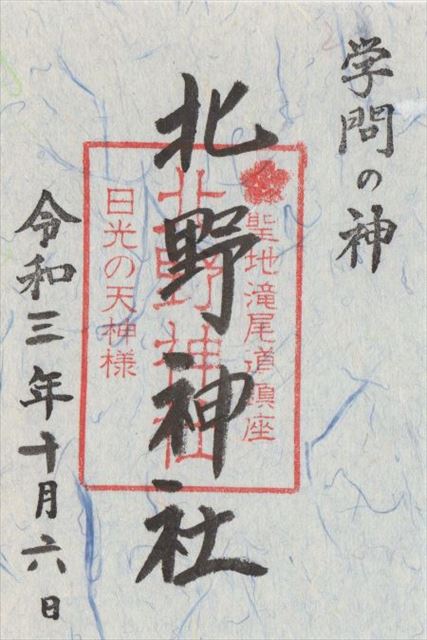 学問の神
北野神社
聖地滝尾道鎮座
北野神社
日光の天神様
令和三年十月六日